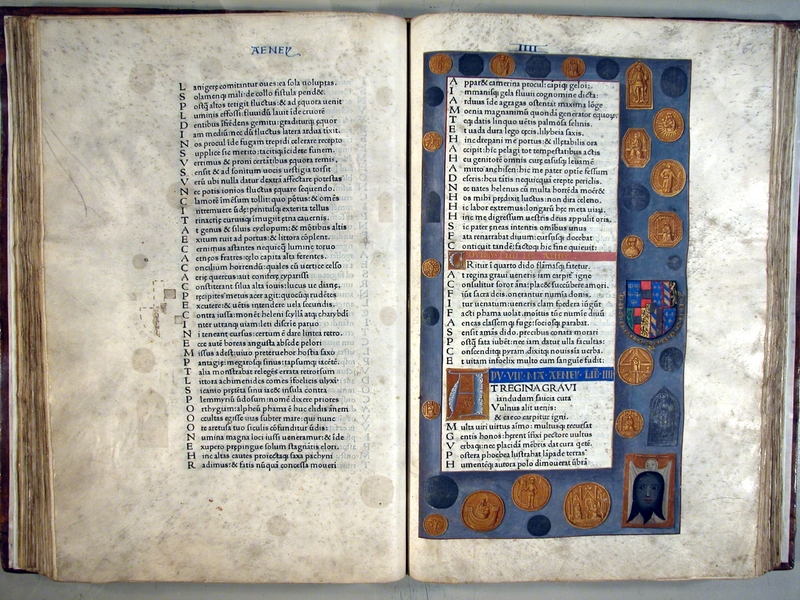 AENEY
L anigerę comitantur oues: ea sola uoluptas.
S olamenq; mali: de collo fistula pendet.
P ostq̃ altos tetigit fluctus: & ad equora uenit
L uminis effossi: fluuidũ lauit ide cruorẽ
D entibus ĩfrẽdens gemitu: graditurq; equor
I am mediũ: nec dũ fluctus latera ardua tixit.
N os procul ide fugam trepidi celerare recepto
S upplice sic merito: taciticq; icidere funem.
V ertimus & proni certatibus equora remis.
S ensit & ad sonitum uocis uestigia torsit
V erũ ubi nulla datur dextrã affectare potestas
N ec potis ionios fluctus equare sequendo.
C lamorẽ ĩmẽsum tollit: quo põtus: & omẽs
I ntremuere ũde: penitusq; exterrita tellus
T rinacrię: curuisq; imugiit etna cauernis.
A t genus & siluis cyclopum: & mõtibus altis
E xcitum ruit ad portus: & littora cõplent.
C ernimus astantes nequicq̃ lumine toruo
A etneos fratres: cęlo capita alta ferentes.
C oncilium horrendũ: quales cũ uertice celso
A erię quercus aut coniferę cyparissi
C onstiterant silua alta iouis: lucus ue dianę.
P recipites metus acer agit: quocũq; rudẽtes
E xcutere: & uẽtis intendere uela secundis.
C ontra iussa: monẽt heleni scyllã atq; charybdĩ
I nter utranq; uiam: leti discrimie paruo
N i teneant cursus: certum ẽ dare lintea retro.
E cce autẽ boreas angusta ab sede pelori
M issus adest: uiuo preteruehor hostia saxo
P antagię: megarosq; sinus: tapsumq; iacẽtẽ.
T alia monstrabat relegẽs errata retrorsum
L ittora achimenides comes ifoelicis ulyxi
S icanio pretẽta sinu iacẽt insula contra
P lemmyriũ ũdosum: nomẽ dixere priores
O rthygium: alpheũ fama ẽ huc elidis ãnem
O ccultas egisse uias subter mare: qui nunc
O re aretusa tuo siculis cõfunditur ũdis:
N umina magna loci iussi ueneramur: & ide
E xupero prepingue solum stagnãtis elori.
H inc altas cautes proiectaq; saxa pachyni
R adimus: & fatis nũquã concessa moueri
IIII
A pparet camerina procul: cãpiq; geloi:
I mmanisq; gela fluuii cognomine dicta:
A rduus ide agragas ostentat maxima lõge
M oenia magnanimũ quondã generator equorũ:
T eq; datis linquo uẽtis palmosa selinis.
E t uada dura lego cęcis lilybeia saxis.
H inc drepani me portus: & illętabilis ora
A ccipit: hic pelagi tot tempestatibus actis
H eu genitorẽ omnis curę casusq; leuamẽ
A mitto anchisen: hic me pater optie fessum
D eseris: heu tãtis nequicquã erepte periclis.
N ec uates helenus cũ multa horrẽda moẽret
H os mihi prędixit luctus: non dira celeno.
H ic labor extremus: longarũ hęc meta uiarũ.
H inc me digressum uestris deus appulit oris.
S ic pater ęneas intentis omnibus unus
F ata renarrabat diuum: cursusq; docebat
C onticuit tandẽ: factoq; hic fine quieuit:
G R ritur i quarto dido flãmasq; fatetur.
A t regina graui ueneris iam carpit' igne
C onsulitur soror ãna: placẽt succũbere amori.
F iut sacra deis. onerantur numĩa donis.
I tur uenatum: ueneris clam foedera iũgut
F acti phama uolat. moĩtus tũc numĩe diuũ
A eneas classemq; fuge: sociosq; parabat.
S ensit amãs dido. precibus conata morari
P ostq̃ fata iubẽt: nec iam datur ulla facultas:
C onscendit q; pyram. dixitq; nouissia uerba.
E t uitam infelix multo cum sanguie fudit:
P. VIR. MA. AENEY. LIB. IIII
AT REGINA GRAVI
iandudum saucia cura
Vulnus alit uenis:
& cæco carpitur igni.
M ulta uiri uirtus aĩmo: multusq; recursat
G entis honos: hęrent ĩfixi pectore uultus
V erbaq;: nec placidã mẽbris dat cura q̃etẽ.
P ostera phoebea lustrabat lãpade terras
H umentẽq; autora polo dimouerat ũbrã